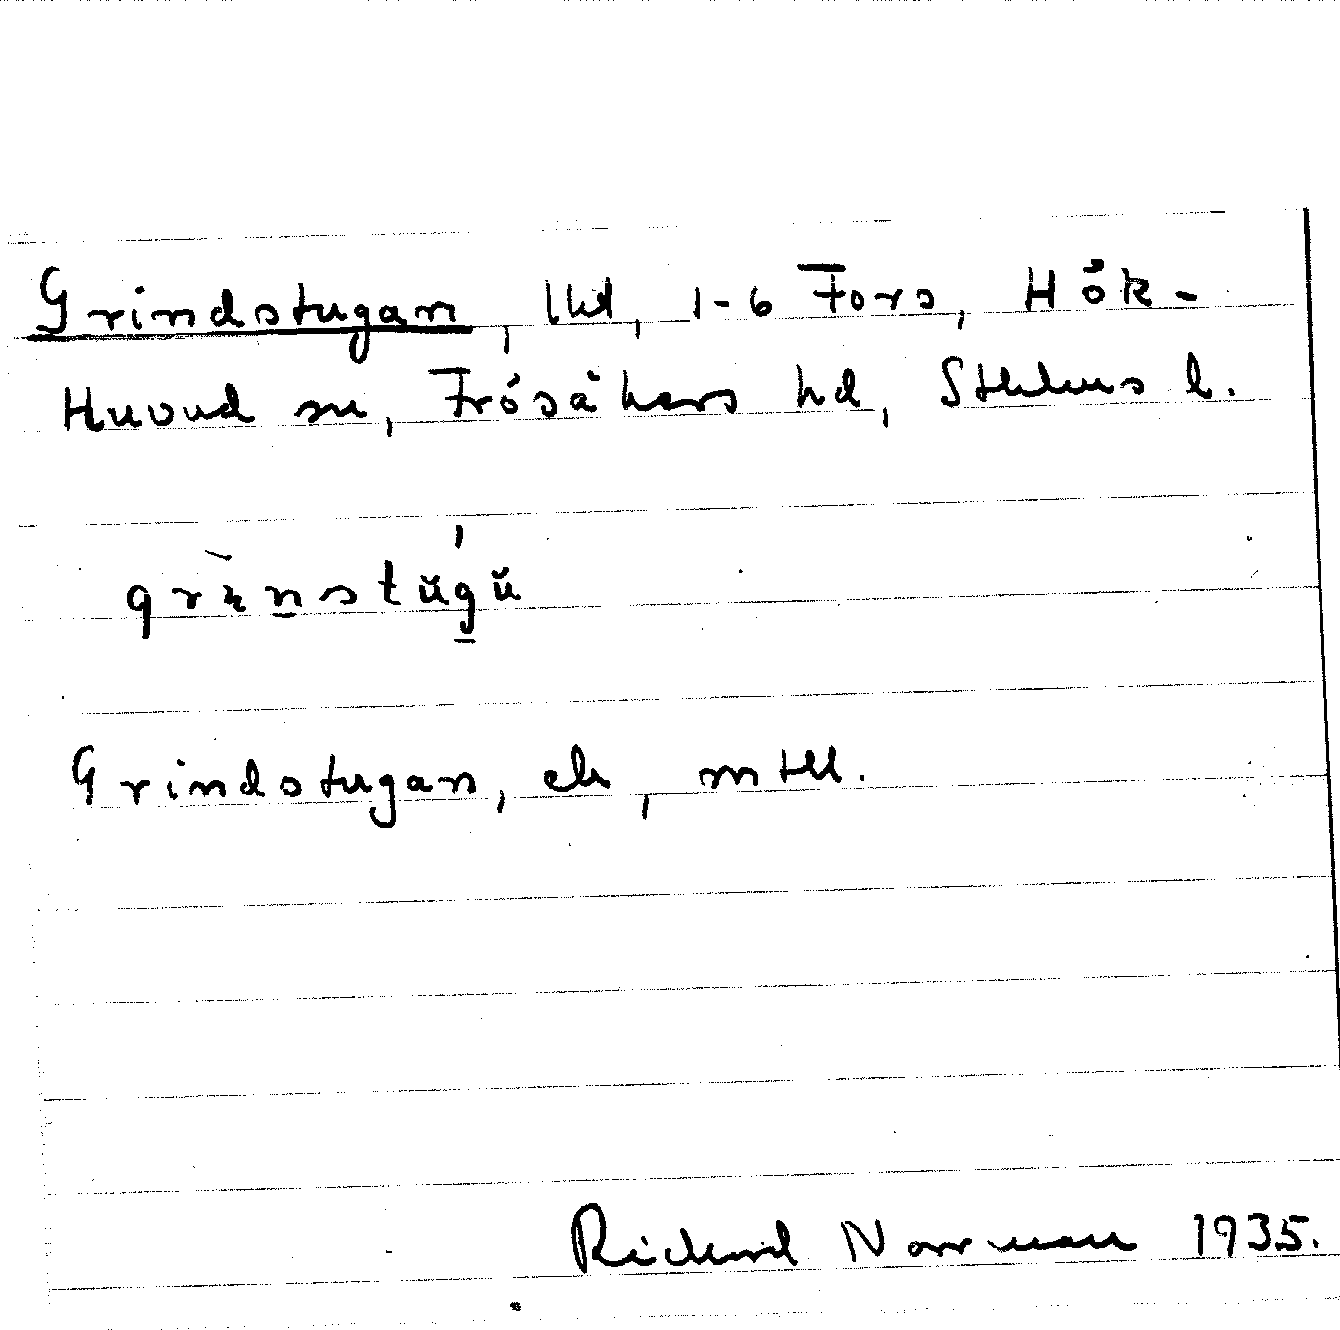 Grindstugan, lhl, 1-6 Fors, Hök-
Huvud sn, Frösåkers hd, Sthlms l.
grɩ̀nstŭgŭ
Grindstugan, ek, mtbl.
Richard Norrman 1935.